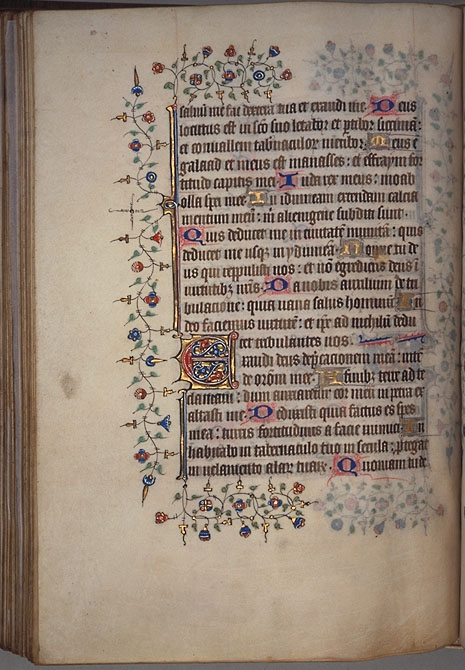 saluū me fac dextera tua et exaudi me. Deus
locutus est in sc̄o suo letabor et ꝑtibor siccimā:
et conuallem tab̄naculor metibor. Meus ē
galaad et meus est manasses: et effraym for
titudo capitis mei. Iuda rex meus: moab
olla spei mee. In idumeam extendam calcia
mentum meū: m̄ alienigene subditi sunt.
Quis deducet me in ciuitatē munitā: quis
deducet me usqꝫ in ydumeā. Nonne tu de
us qui reppulisti nos: et nō egredieris deus ī
uirtutibꝫ nr̄is. Da nobis auxilium de tri
bulacione: quia uana salus hominū. In
deo faciemus uirtutē: et ip̄e ad nichilū dedu
cet tribulantes nos.
Exaudi deus dep̄cacionem meā: intē
de orōni mee. A finibꝫ terre ad te
clamaui: dum anxiaretur cor meū in petra ex
altasti me. Deduxisti quia factus es spes
mea: turris fortitudinis a facie inimici. In
habitabo in tabernaculo tuo in secula: ꝓtegar
in uelamento alar tuar. Quoniam tu de